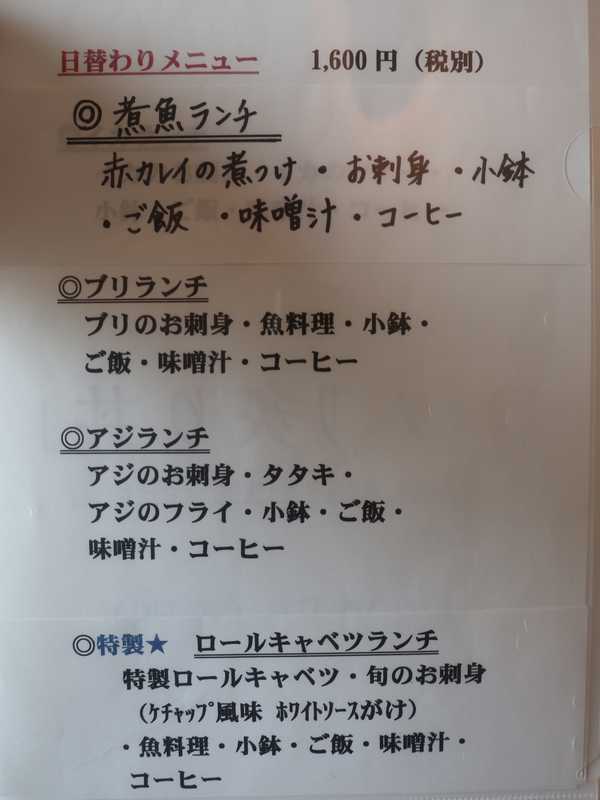 日替わりメニュー 1,600円（税別）
◎煮魚ランチ
赤カレイの煮つけ・お刺身・小鉢
・ご飯・味噌汁・コーヒー
◎ブリランチ
ブリのお刺身・魚料理・小鉢・
ご飯・味噌汁・コーヒー
◎アジランチ
アジのお刺身・タタキ・
アジのフライ・小鉢・ご飯・
味噌汁・コーヒー
◎特製★ ロールキャベツランチ
特製ロールキャベツ・旬のお刺身
（ｹﾁｬｯﾌﾟ風味 ﾎﾜｲﾄｿｰｽがけ）
・魚料理・小鉢・ご飯・味噌汁・
コーヒー